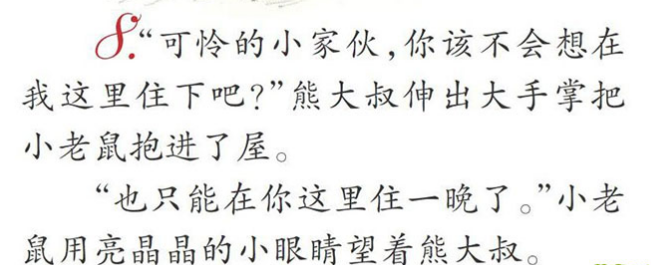 8.“可怜的小家伙,你该不会想在
我这里住下吧?”熊大叔伸出大手掌把
小老鼠抱进了屋。
“也只能在你这里住一晚了。”小老
鼠用亮晶晶的小眼睛望着熊大叔。